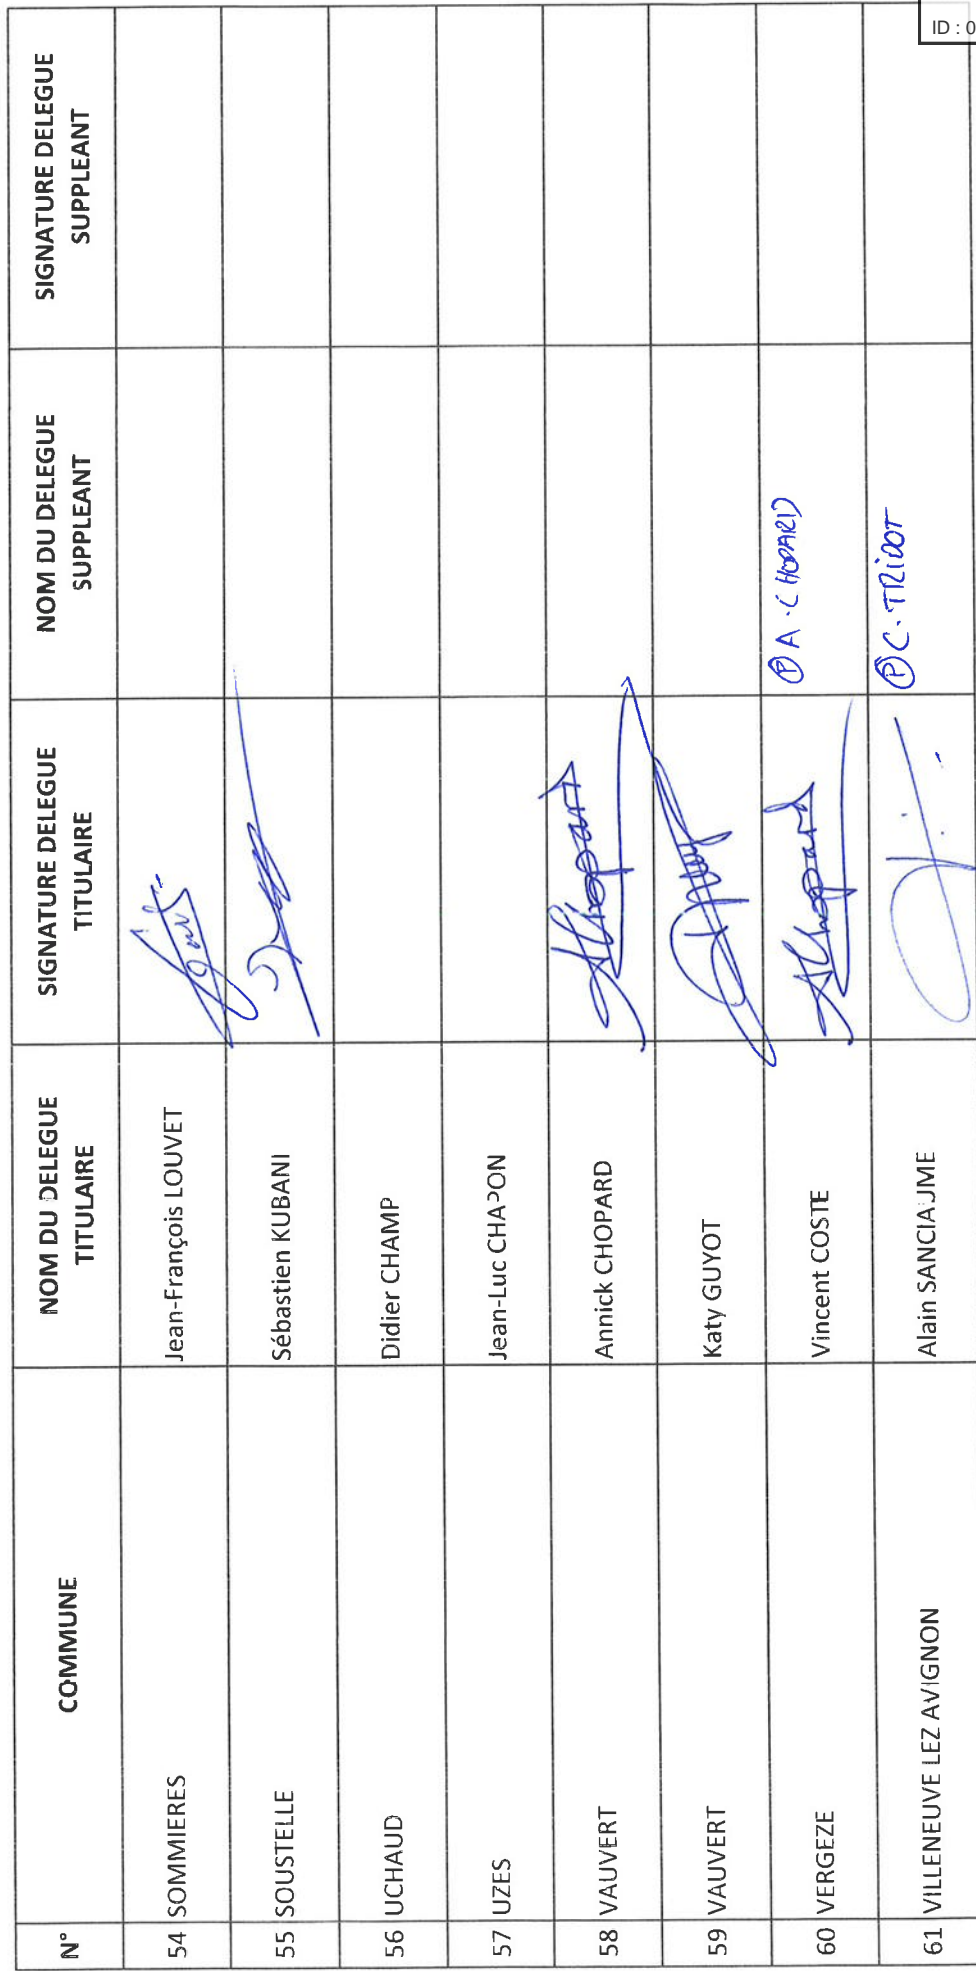 ID : 0
N° COMMUNE NOM DU DELEGUE TITULAIRE SIGNATURE DELEGUE TITULAIRE NOM DU DELEGUE SUPPLEANT SIGNATURE DELEGUE SUPPLEANT
54 SOMMIERES Jean-François LOUVET
55 SOUSTELLE Sébastien KUBANI
56 UCHAUD Didier CHAMP
57 UZES Jean-Luc CHAPON
58 VAUVERT Annick CHOPARD AChopard
59 VAUVERT Katy GUYOT
60 VERGEZE Vincent COSTE AChopard Ⓟ A. CHOPARD
61 VILLENEUVE LEZ AVIGNON Alain SANCIAUME Ⓟ C. TRIDOT